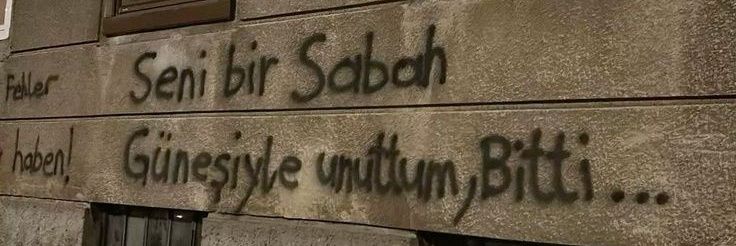 Fehler
haben!
Seni bir Sabah
Güneşiyle unuttum, Bitti...